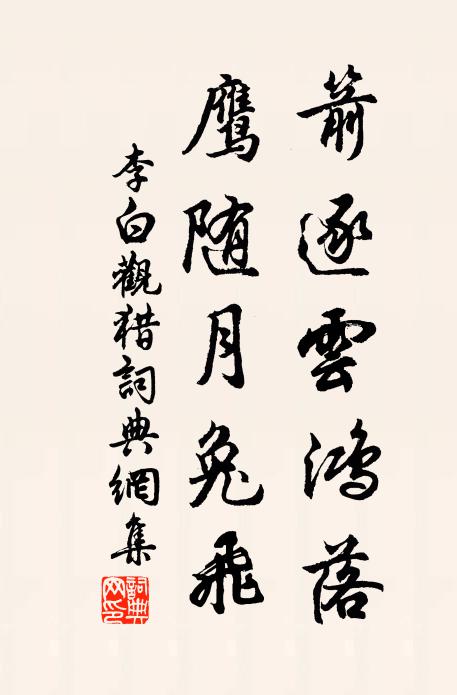 箭逐雲鴻落
鷹随月兔飛
李白觀猎詞典網集
詞典
网印